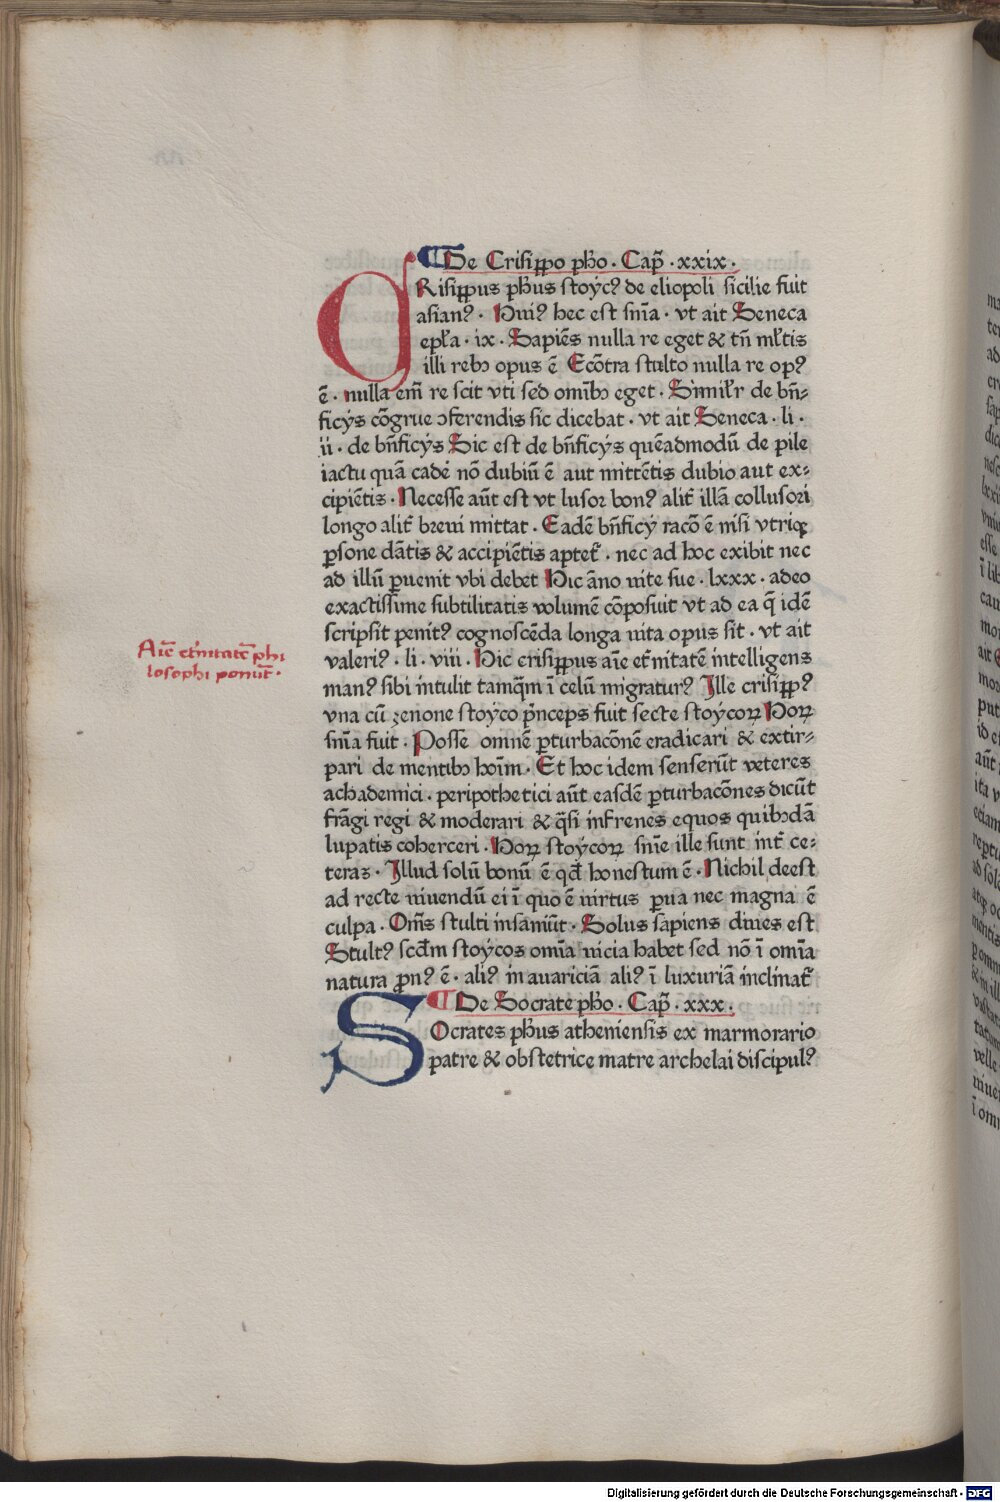 ¶ De Crisippo pħo . Cap̃ . xxix .
CRisippus pħus stoycꝰ de eliopoli sicilie fuit
asianꝰ . Huiꝰ hec est sñia . vt ait Seneca
epła . ix . Sapiẽs nulla re eget & tñ młtis
illi rebꝫ opus ẽ Ecõtra stulto nulla re opꝰ
ẽ . nulla em̃ re scit vti sed omĩbꝫ eget . Simiłr de bñ⸗
ficijs cõgrue ꝯferendis sic dicebat . vt ait Seneca . li .
ii . de bñficijs Sic est de bñficijs quẽadmodũ de pile
iactu quã cadẽ nõ dubiũ ẽ aut mittẽtis dubio aut ex⸗
cipiẽtis . Necesse aũt est vt lusor bonꝰ alit̃ illã collusori
longo alit̃ breui mittat . Eadẽ bñficij racõ ẽ nisi vtriqꝫ
ꝑsone dãtis & accipiẽtis aptet̃ . nec ad hoc exibit nec
ad illũ ꝑuenit vbi debet Hic ãno uite sue . lxxx . adeo
exactissime subtilitatis volumẽ cõposuit vt ad ea q̃ idẽ
scripsit penitꝰ cognoscẽda longa uita opus sit . vt ait
valeriꝰ . li . viii . Hic crisippus aĩe et̃nitatẽ intelligens
manꝰ sibi intulit tamq̃m ĩ celũ migraturꝰ Ille crisippꝰ
vna cũ zenone stoyco p̃nceps fuit secte stoycoꝝ Hoꝝ
sñia fuit . Posse omnẽ ꝑturbacõnẽ eradicari & extir⸗
pari de mentibꝫ hoĩm . Et hoc idem senserũt veteres
achademici . peripothetici aũt easdẽ ꝑturbacõnes dicũt
frãgi regi & moderari & q̃si infrenes equos quibꝫdã
lupatis coherceri . Hoꝝ stoycoꝝ sñie ille sunt int̃ ce⸗
teras . Illud solũ bonũ ẽ qđ honestum ẽ . Nichil deest
ad recte uiuendũ ei ĩ quo ẽ uirtus ꝑua nec magna ẽ
culpa . Om̃s stulti insaniũt . Solus sapiens diues est
Stultꝰ scđm stoycos omĩa uicia habet sed nõ ĩ omĩa
natura ꝓnꝰ ẽ . aliꝰ in auariciã aliꝰ ĩ luxuriã inclinat̃
¶ De Socrate pħo . Cap̃ . xxx .
SOcrates pħus atheniensis ex marmorario
patre & obstetrice matre archelai discipulꝰ
Aĩe et̃nitatẽ phi
losophi ponũt .
Digitalisierung gefördert durch die Deutsche Forschungsgemeinschaft - DFG